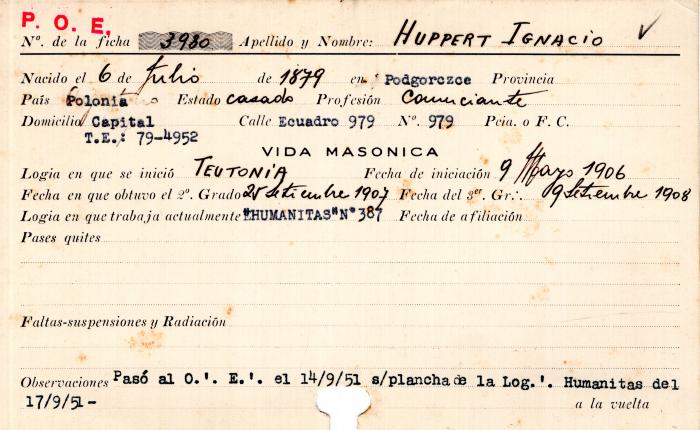 P. O. E.
Nº. de la ficha 3980 Apellido y Nombre: HUPPERT IGNACIO
Nacido el 6 de Julio de 1879 en Podgorczce Provincia
País Polonia Estado casado Profesión Comerciante
Domicilio Capital Calle Ecuadro 979 Nº. 979 Pcia. o F. C.
T.E.: 79-4952
VIDA MASONICA
Logia en que se inició TEUTONIA Fecha de iniciación 9 Mayo 1906
Fecha en que obtuvo el 2º. Grado 25 Setiembre 1907 Fecha del 3er. Gr.. 9 Setiembre 1908
Logia en que trabaja actualmente "HUMANITAS" Nº 387 Fecha de afiliación
Pases quites
Faltas-suspensiones y Radiación
Observaciones Pasó al O.'. E.'. el 14/9/51 s/plancha de la Log.'. Humanitas del
17/9/51- a la vuelta